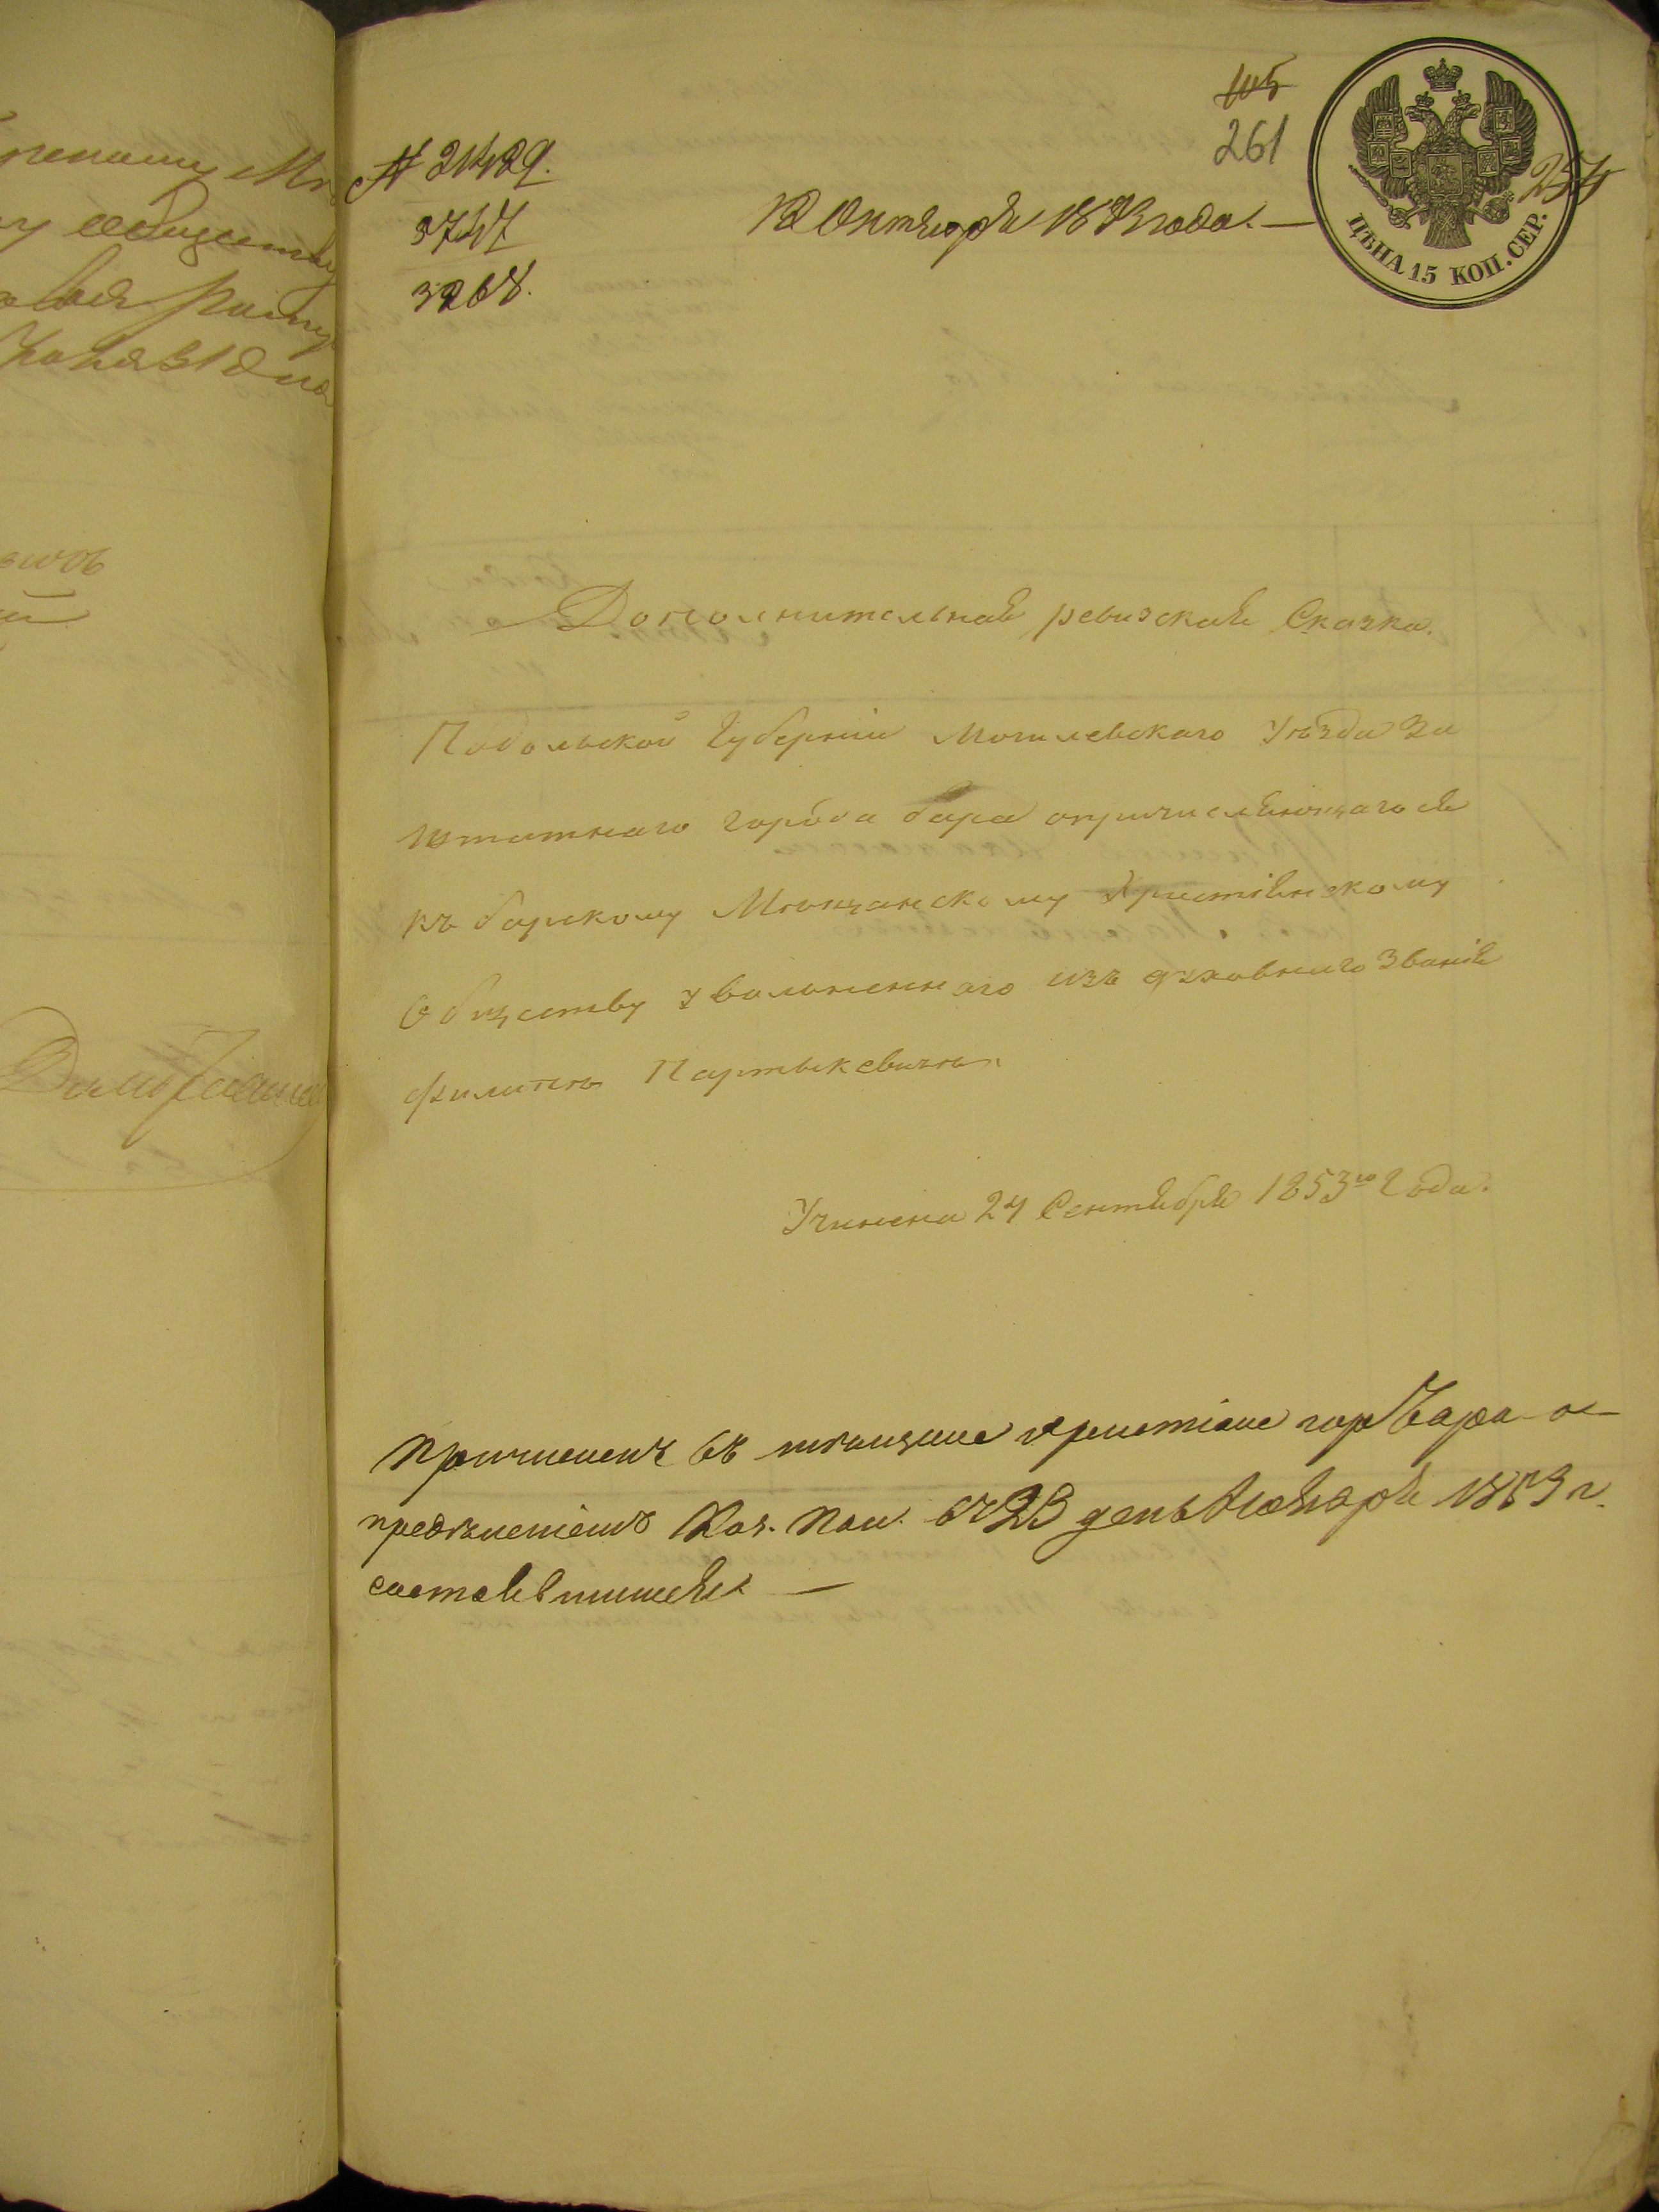 105
261
254
ЦѢНА 15 КОП. СЕР.
№ 21429.
3747
3268.
12 Октября 1853 года. —
Дополнительная ревизская Сказка.
Подольской Губерніи Могилевскаго Уѣзда За
штатнаго города бара о причисляющагося
къ барскому Мѣщанскому Христіянскому
Обществу уволъненнаго изъ духовнаго Званія
Филиппа Партыкевича
Учинена 24 Сентября 1853го Года.
Причисленъ въ мѣщане христіане гор Бара о-
предѣленіемъ Каз. Пал. въ 23 день Января 1853 г.
состоявшимся —